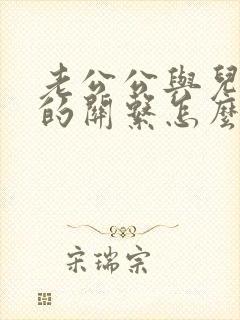 老公公與兒
的關繫怎麼
宋瑞宗